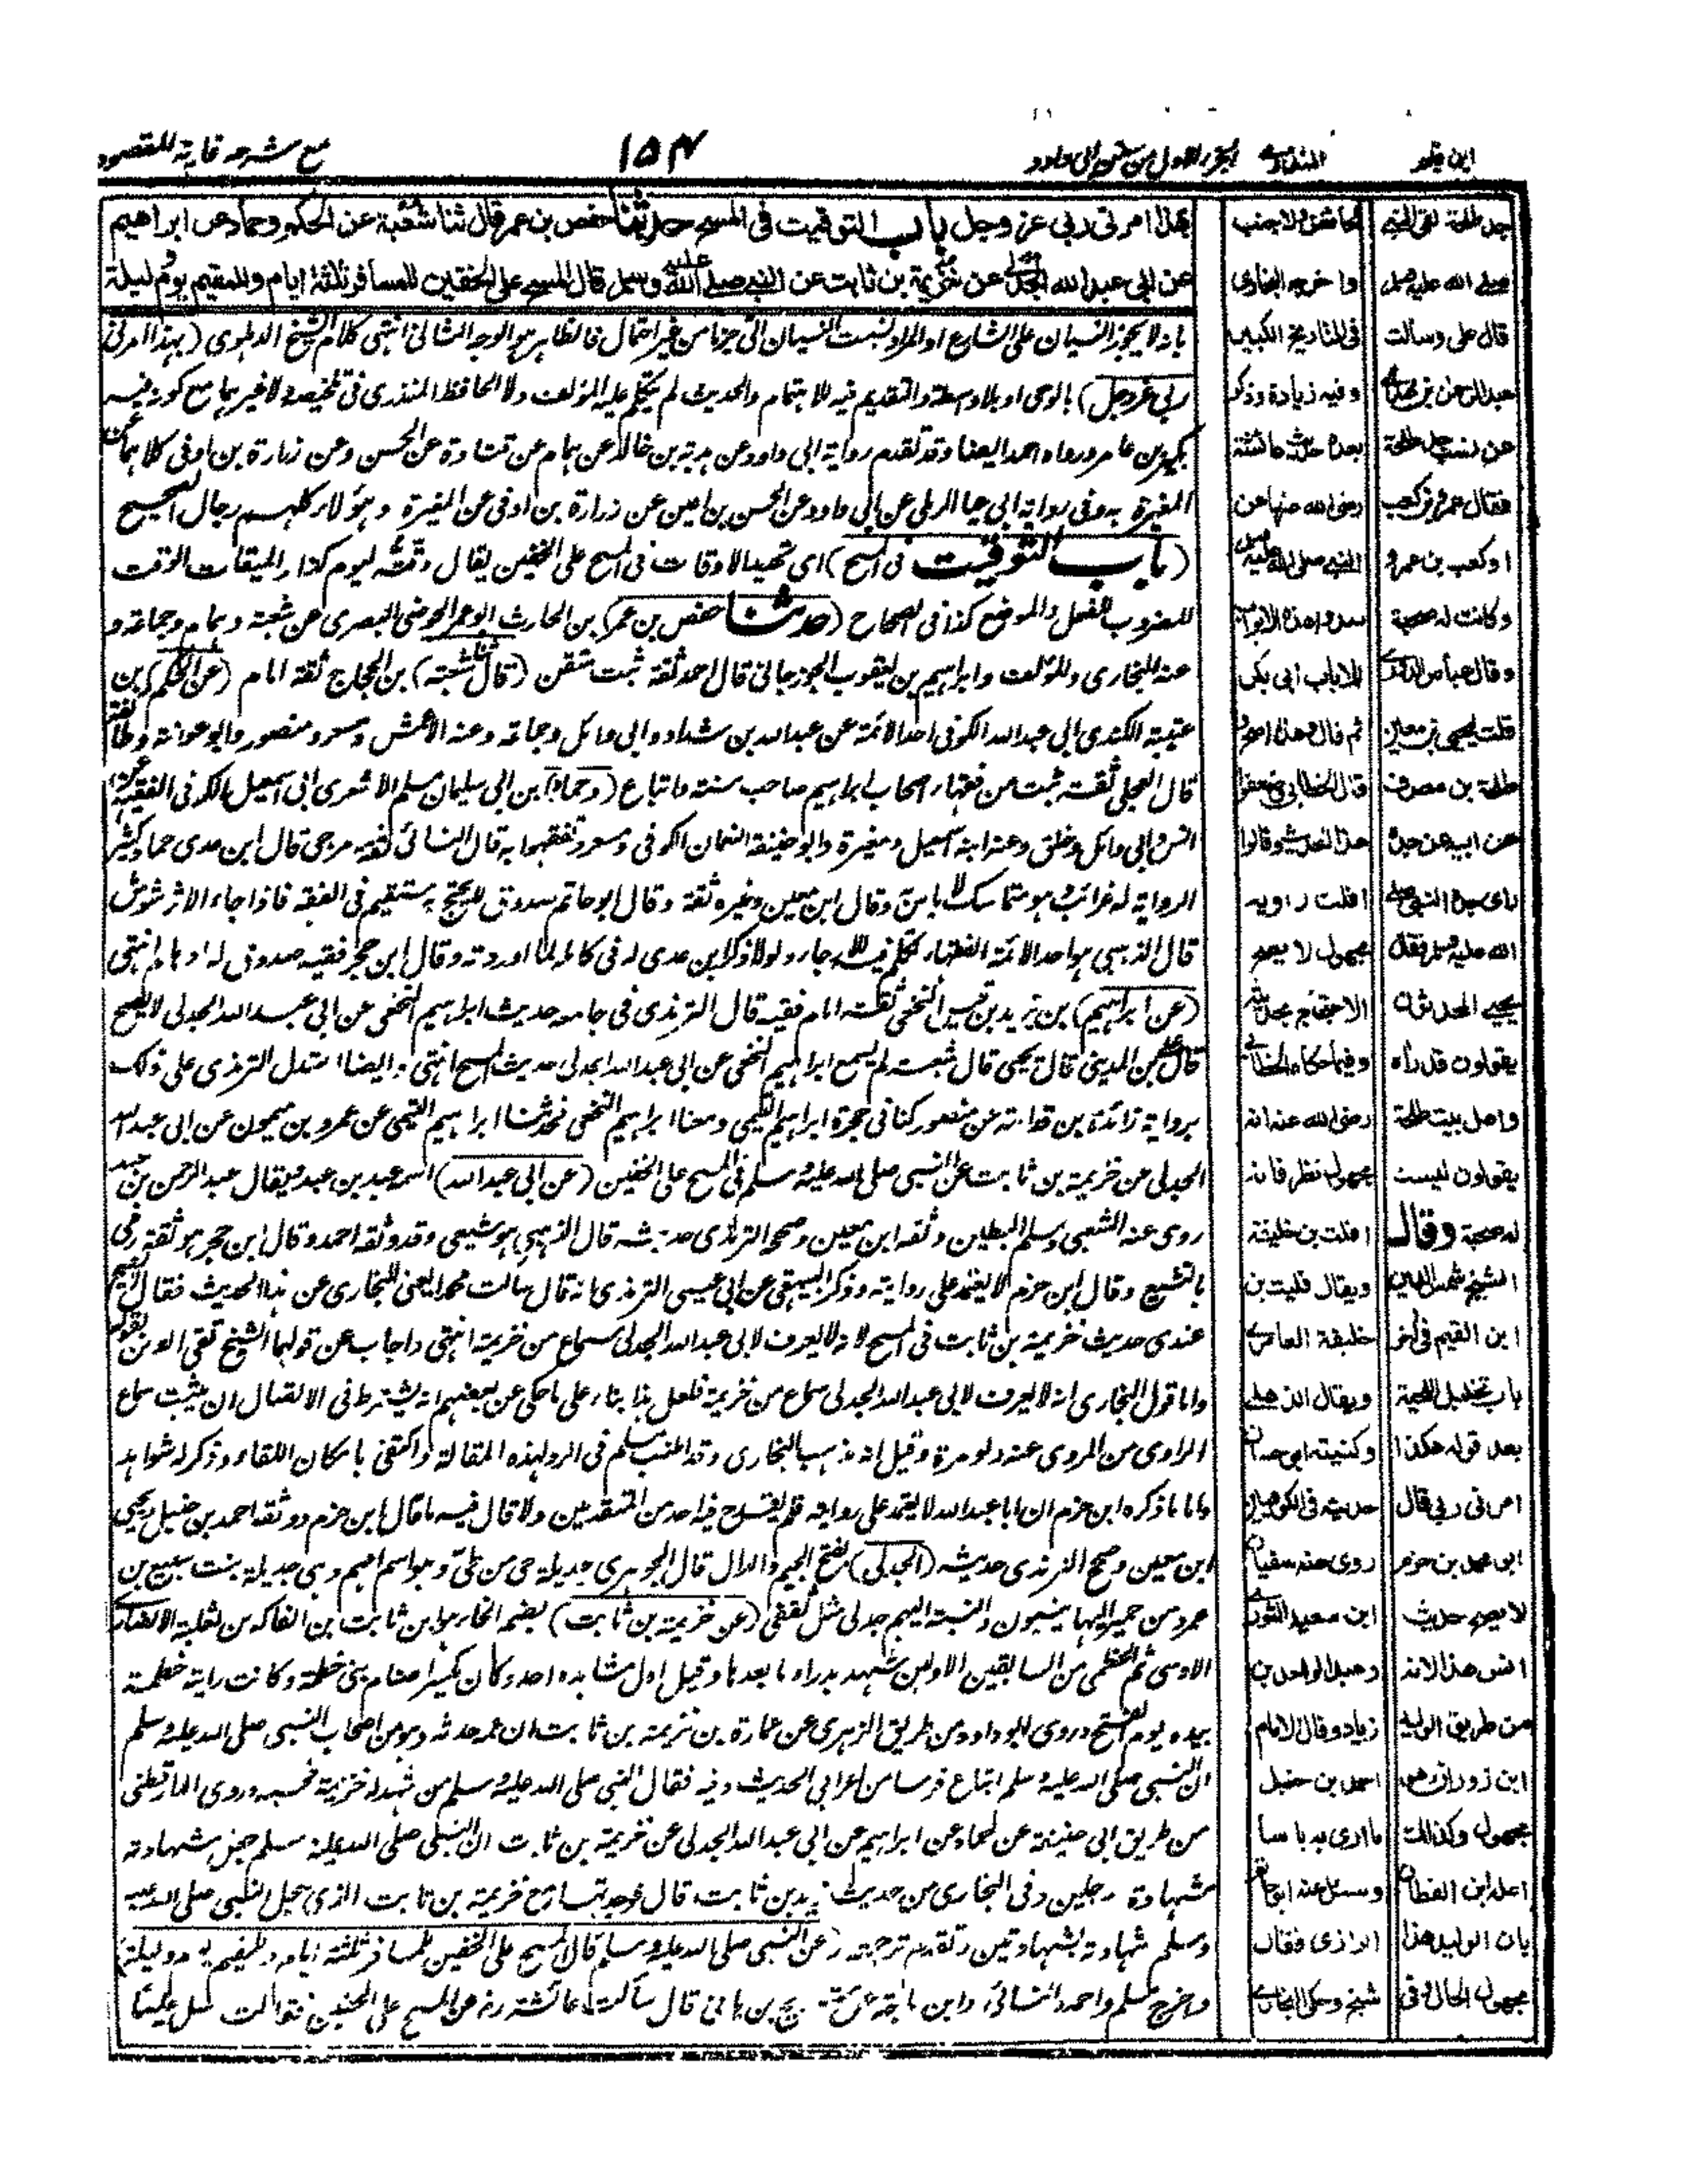 ابن قيم
المنذري
الجزء الاول من سنن ابى داود
١٥٣
مع شرحه غاية المقصود
بهذا امرنى ربى عز وجل باب التوقيت فى المسح حدثنا حفص بن عمر قال ثنا شعبة عن الحكم وحماد عن ابراهيم
عن ابى عبد الله الجدلى عن خزيمة بن ثابت عن النبى صلى الله عليه وسلم قال المسح على الخفين للمسافر ثلثة ايام وللمقيم يوم وليلة
بانه لا يجوز النسيان على الشارع او المراد نسبت النسيان الىّ جزما من غير احتمال فالظاهر هو الوجه الثانى انتهى كلام الشيخ الدهلوى (بهذا امرنى
ربى عز وجل) بالوحى او بلا واسطة والتقديم فيه للاهتمام والحديث لم يتكلم عليه المؤلف ولا الحافظ المنذرى فى تلخيصه ولا غيرهما مع كون فيه
بكير بن عامر ورواه احمد ايضا وقد تقدم رواية ابى داود عن هدبة بن خالد عن همام عن قتادة عن الحسن وعن زرارة بن اوفى كلاهما عن
المغيرة به وفى رواية ابى عيسى الرملى عن ابى داود عن الحسن بن اعين عن زرارة بن اوفى عن المغيرة وهؤلاء كلهم رجال الصحيح
(باب التوقيت فى المسح) اى تحديد الاوقات فى المسح على الخفين يقال وقّته ليوم كذا والميقات الوقت
المضروب للفعل والموضع كذا فى الصحاح (حدثنا حفص بن عمر) بن الحارث ابو عمر الحوضى البصرى عن شعبة وهمام وجماعة و
عنه البخارى والمؤلف وابراهيم بن يعقوب الجوزجانى قال احمد ثقة ثبت متقن (قال ثنا شعبة) بن الحجاج ثقة امام (عن الحكم) بن
عتيبة الكندى ابى عبد الله الكوفى احد الائمة عن عبد الله بن شداد وابى وائل وجماعة وعنه الاعمش ومسعر ومنصور وابو عوانة وخلق
قال العجلى ثقة ثبت من فقهاء اصحاب ابراهيم صاحب سنة واتباع (وحماد) بن ابى سليمان مسلم الاشعرى ابى اسمعيل الكوفى الفقيه عن
انس وابى وائل وخلق وعنه ابنه اسمعيل ومغيرة وابو حنيفة النعمان الكوفى ومسعر وتفقهوا به قال النسائى ثقة مرجى قال ابن عدى حماد كثير
الرواية له غرائب هو متماسك لا باس به وقال ابن معين وغيره ثقة وقال ابو حاتم صدوق لا يحتج به مستقيم فى الفقه فاذا جاء الاثر شوش
قال الذهبى هو احد الائمة الفقهاء تكلم فيه للارجاء ولولا ذكر ابن عدى له فى كامله لما اوردته وقال ابن حجر فقيه صدوق له اوهام انتهى
(عن ابراهيم) بن يزيد بن قيس النخعى ثقة امام فقيه قال الترمذى فى جامعه حديث ابراهيم النخعى عن ابى عبد الله الجدلى لا يصح
قال على بن المدينى قال يحيى قال شعبة لم يسمع ابراهيم النخعى عن ابى عبد الله الجدلى حديث المسح انتهى وايضا استدل الترمذى على ذلك
برواية زائدة بن قدامة عن منصور كنا فى حجرة ابراهيم التيمى ومعنا ابراهيم النخعى فحدثنا ابراهيم التيمى عن عمرو بن ميمون عن ابى عبد الله
الجدلى عن خزيمة بن ثابت عن النبى صلى الله عليه وسلم فى المسح على الخفين (عن ابى عبد الله) اسمه عبد بن عبد ويقال عبد الرحمن بن عبد
روى عنه الشعبى ومسلم البطين وثقه ابن معين وصحح الترمذى حديثه قال الذهبى هو شيعى وقد وثقه احمد وقال ابن حجر هو ثقة رمى
بالتشيع وقال ابن حزم لا يعتمد على روايته وذكر البيهقى عن ابى عيسى الترمذى انه قال سالت محمدا يعنى البخارى عن هذا الحديث فقال لا يصح
عندى حديث خزيمة بن ثابت فى المسح لانه لا يعرف لابى عبد الله الجدلى سماع من خزيمة انتهى واجاب عن قولهما الشيخ تقى الدين بقوله
واما قول البخارى انه لا يعرف لابى عبد الله الجدلى سماع من خزيمة فلعل هذا بناء على ما حكى عن بعضهم انه يشترط فى الاتصال ان يثبت سماع
الراوى من المروى عنه ولو مرة وقيل انه مذهب البخارى وقد اطنب مسلم فى الرد لهذه المقالة واكتفى بامكان اللقاء وذكر له شواهد
واما ما ذكره ابن حزم ان ابا عبد الله لا يعتمد على روايته فلم يقدح فيه احد من المتقدمين ولا قال فيه ما قال ابن حزم ووثقه احمد بن حنبل ويحيى
ابن معين وصحح الترمذى حديثه (الجدلى) بفتح الجيم والدال قال الجوهرى جديلة حى من طىّ وهو اسم امهم وهى جديلة بنت سبيع بن
عمرو من حمير اليها ينسبون والنسبة اليهم جدلى مثل ثقفى (عن خزيمة بن ثابت) بضم الخاء هو ابن ثابت بن الفاكه بن ثعلبة الانصارى
الاوسى ثم الخطمى من السابقين الاولين شهد بدرا وما بعدها وقيل اول مشاهده احد وكان يكسر اصنام بنى خطمة وكانت راية خطمة
بيده يوم الفتح وروى ابو داود من طريق الزهرى عن عمارة بن خزيمة بن ثابت ان عمه حدثه وهو من اصحاب النبى صلى الله عليه وسلم
ان النبى صلى الله عليه وسلم ابتاع فرسا من اعرابى الحديث وفيه فقال النبى صلى الله عليه وسلم من شهد له خزيمة فحسبه وروى الدارقطنى
من طريق ابى حنيفة عن حماد عن ابراهيم عن ابى عبد الله الجدلى عن خزيمة بن ثابت ان النبى صلى الله عليه وسلم جعل شهادته
شهادة رجلين وفى البخارى من حديث زيد بن ثابت قال فوجدتها مع خزيمة بن ثابت الذى جعل النبى صلى الله عليه
وسلم شهادته بشهادتين وتقدم ترجمته (عن النبى صلى الله عليه وسلم قال المسح على الخفين للمسافر ثلثة ايام وللمقيم يوم وليلة)
واخرج مسلم واحمد والنسائى وابن ماجة عن شريح بن هانى قال سالت عائشة رض عن المسح على الخفين فقالت سل عليا
جد طلحة لقى النبى
صلى الله عليه وسلم
قال على وسالت
عبد الرحمن بن مهدى
عن نسب جد طلحة
فقال عمرو بن كعب
او كعب بن عمرو
وكانت له صحبة
وقال عباس الدورى
قلت ليحيى بن معين
طلحة بن مصرف
عن ابيه عن جده
راى جده النبى صلى
الله عليه وسلم فقال
يحيى المحدثون
يقولون قد رآه
واهل بيت طلحة
يقولون ليست
له صحبة وقال
الشيخ شمس الدين
ابن القيم فى اخر
باب تخليل اللحية
بعد قوله هكذا
امرنى ربى قال
ابو محمد بن حزم
لا يصح حديث
انس هذا لانه
من طريق الوليد
ابن زوران وهو
مجهول وكذلك
اعله ابن القطان
بان الوليد هذا
مجهول الحال وفى
لحائض ولا جنب
واخرجه البخارى
فى التاريخ الكبير
وفيه زيادة وذكر
بعده حديث عائشة
رضى الله عنها عن
النبى صلى الله عليه وسلم
سدوا هذه الابواب
الا باب ابى بكر
ثم قال وهذا اصح
قال الخطابى وضعفوا
هذا الحديث وقالوا
افلت راويه
مجهول لا يصح
الاحتجاج بحديثه
وفيما حكاه الخطابى
رضى الله عنه انه
مجهول نظر فانه
افلت بن خليفة
ويقال فليت بن
خليفة العامرى
ويقال الذهلى
وكنيته ابو حسان
حديثه فى الكوفيين
روى عنه سفيان
ابن سعيد الثورى
وعبد الواحد بن
زياد وقال الامام
احمد بن حنبل
ما ارى به باسا
وسئل عنه ابو حاتم
الرازى فقال
شيخ وحكى البخارى